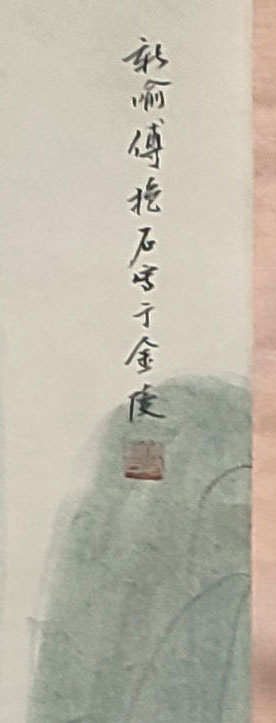 新喻傅抱石写于金陵